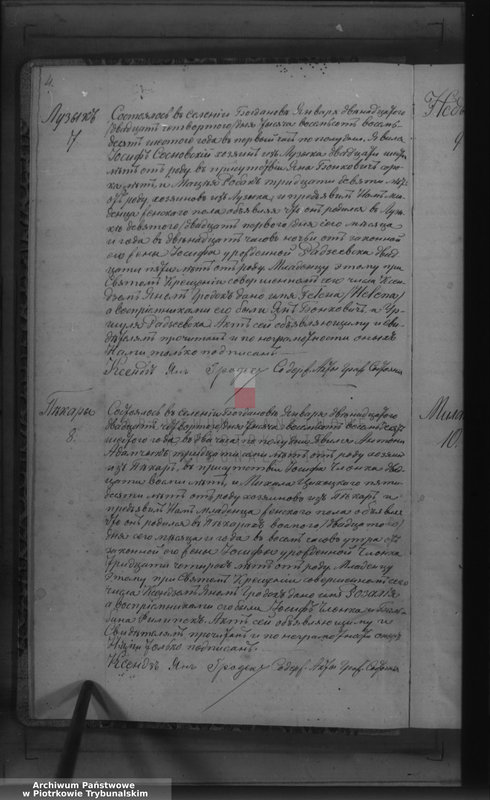 4.
Музыкъ
7
Состоялось въ селеніи Богдановъ Января двенадцатого
/двадцать четвертого/ дня тысяча восемьсотъ восемь-
десятъ шестого года въ первый часъ по полудни. Явился
Іосифъ Сосновскій хозяинъ изъ Музыка двадцати шести
лѣтъ отъ роду въ присутствіи Яна Бонковичъ соро-
ка лѣтъ и Мацея Робакъ тридцати девяти лѣтъ
отъ роду хозяиновъ изъ Музыка, и предъявилъ Намъ мла-
денца женского пола объявляя что онъ родился въ Музы-
кѣ девятого /двадцать первого/ дня сего мѣсяца
и года въ двенадцать часовъ ночьи отъ законной
его жены Іосифы урожденной
цати пяти лѣтъ отъ роду. Младенцу этому при
Святомъ Крещеніи совершенномъ сего числа Ксен-
дзомъ Яномъ Гродекъ дано имя Гелена /Helena/
а воспріемниками его были Янъ Бонковичъ и Ур-
шуля Акт сей объявляющему и сви-
дѣтелямъ прочитанъ и по неграмотности онихъ
Нами только подписанъ
Ксендзъ Янъ Гродекъ Содерж. Акты Граж. Состоянія
Пекары
8.
Состоялось въ селеніи Богдановъ Января двенадцатого
/двадцать четвертого/ дня тысяча восемьсотъ восемьдесятъ
шестого года въ два часа по полудни. Явился Антоній
тридцати лѣтъ отъ роду хозяинъ
изъ Пекаръ, въ присутствіи Іосифа Членка два-
цати восьми лѣтъ, и Михала пяти-
десяти лѣтъ отъ роду хозяиновъ изъ Пекаръ, и
предъявилъ Намъ младенца женского пола объявляя
что онъ родился въ Пекарахъ восьмого /двадцатого/
дня сего мѣсяца и года въ восемь часовъ утра отъ
законной его жены Іосифы урожденной Членка
тридцати четырехъ лѣтъ отъ роду. Младенцу
этому при Святомъ Крещеніи совершенномъ сего
числа Ксендзомъ Яномъ Гродекъ дано имя Розалія
а воспріемниками его были Іосифъ Членка и
Филипокъ. Актъ сей объявляющему и
Свидѣтелямъ прочитанъ и по неграмотности онихъ
Нами только подписанъ.
Ксендзъ Янъ Гродекъ Содерж. Акты Граж. Состоянія
9
Мила
10.
Archiwum Państwowe
w Piotrkowie Trybunalskim